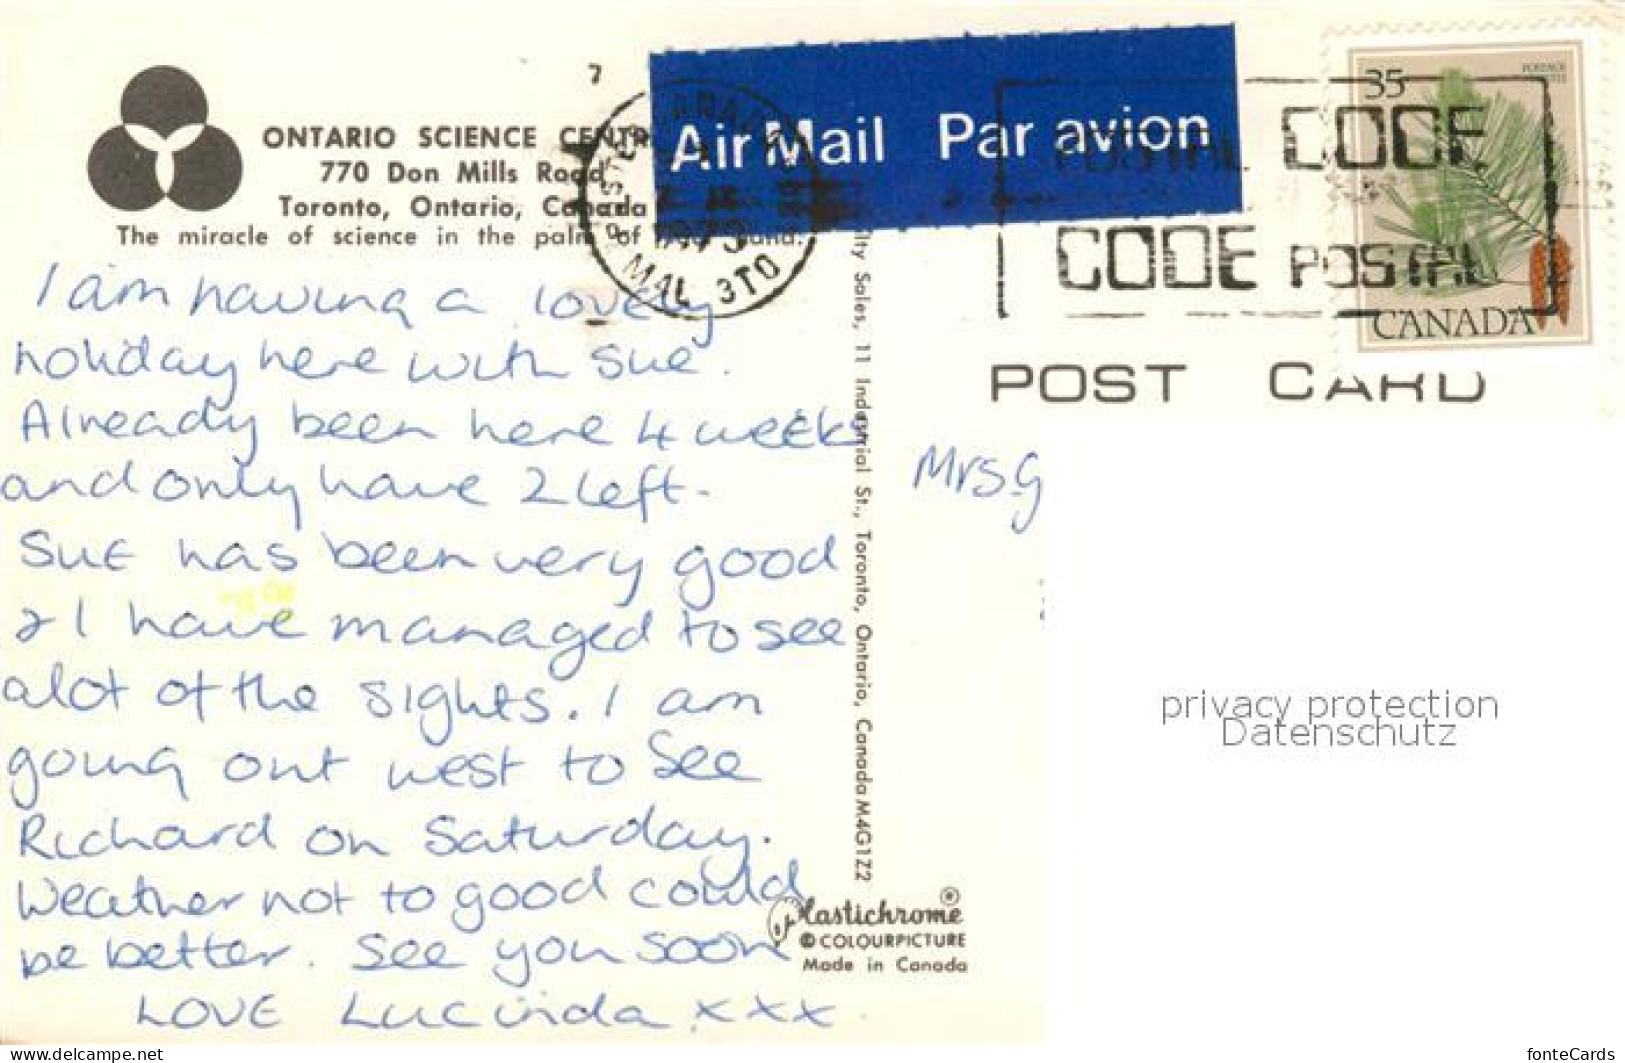 ONTARIO SCIENCE CENTR
770 Don Mills Road
Toronto, Ontario, Canada
The miracle of science in the palm of hand.
I am having a lovely
holiday here with Sue.
Already been here 4 weeks
and only have 2 left.
Sue has been very good
& I have managed to see
alot of the sights. I am
going out west to see
Richard on Saturday.
Weather not to good could
be better. See you soon
LOVE Lucinda xxx
Air Mail Par avion
MAL 3T0
POSTAL CODE
CODE POSTAL
35
POSTAGE
CANADA
POST CARD
Mrs. G
lty Sales, 11 Industrial St., Toronto, Ontario, Canada M4G1Z2
Plastichrome ®
© COLOURPICTURE
Made in Canada
privacy protection
Datenschutz
www.delcampe.net
fonteCards